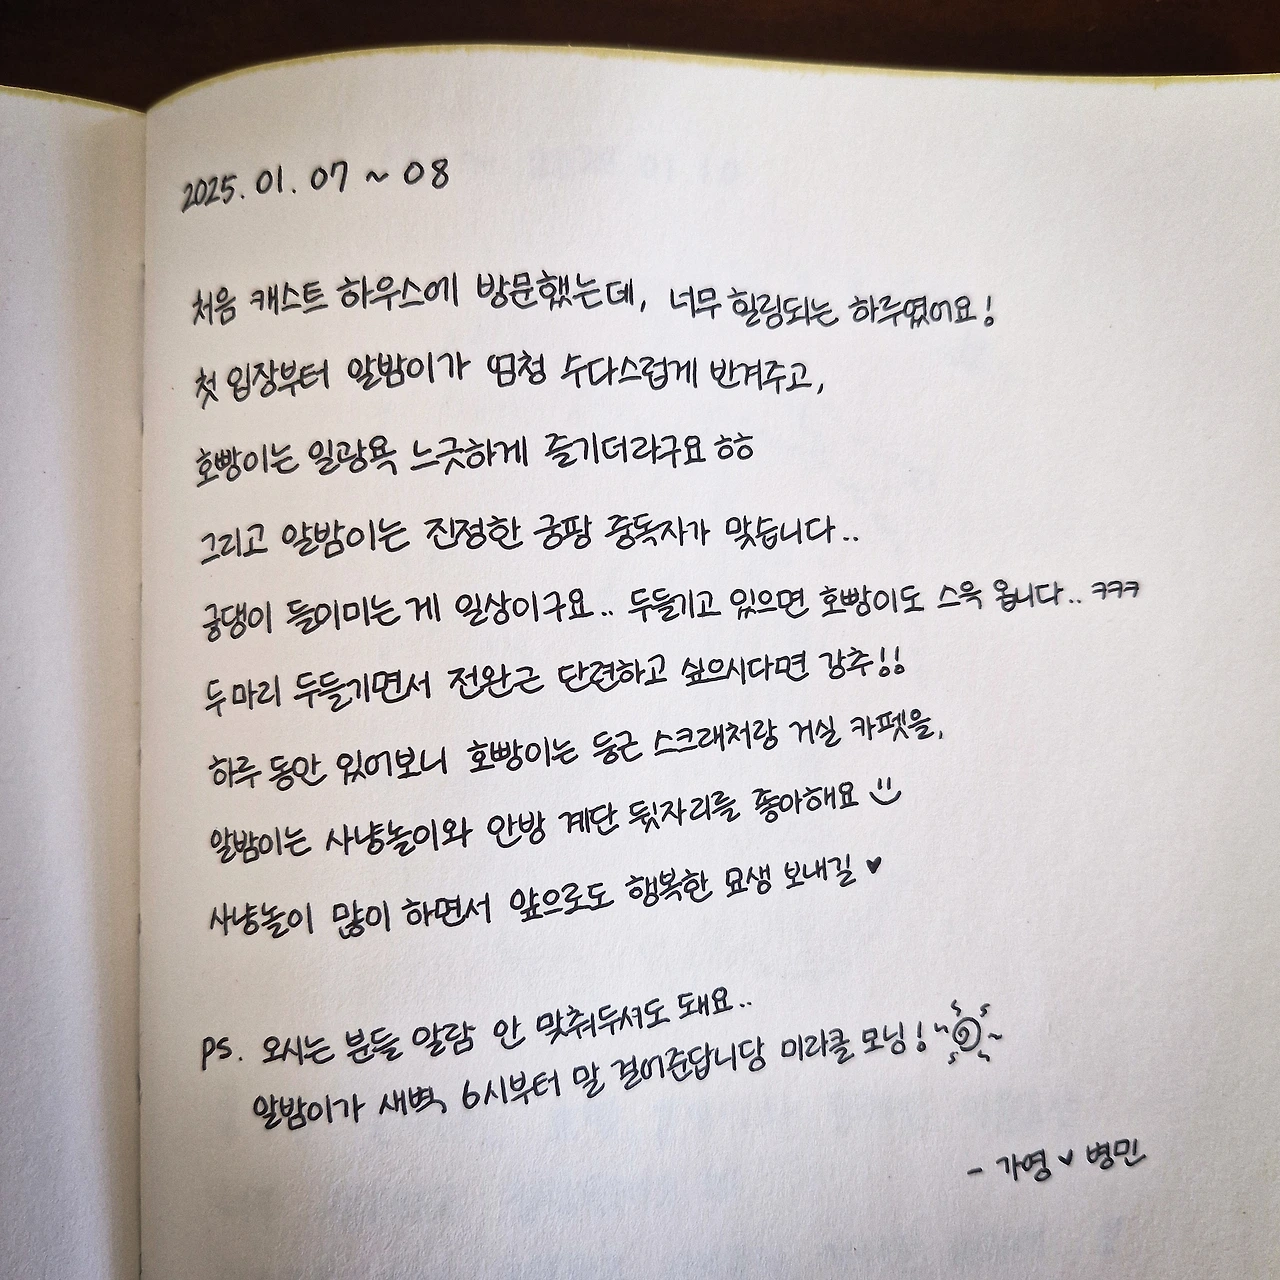 2025. 01. 07 ~ 08
처음 캐스트 하우스에 방문했는데, 너무 힐링되는 하루였어요!
첫 입장부터 알밤이가 엄청 수다스럽게 반겨주고,
호빵이는 일광욕 느긋하게 즐기더라구요 ㅎㅎ
그리고 알밤이는 진정한 궁팡 중독자가 맞습니다..
궁댕이 들이미는 게 일상이구요.. 두들기고 있으면 호빵이도 스윽 옵니다.. ㅋㅋㅋ
두마리 두들기면서 전완근 단련하고 싶으시다면 강추!!
하루 동안 있어보니 호빵이는 둥근 스크래처랑 거실 카펫을,
알밤이는 사냥놀이와 안방 계단 뒷자리를 좋아해요
사냥놀이 많이 하면서 앞으로도 행복한 묘생 보내길 ♥
PS. 오시는 분들 알람 안 맞춰두셔도 돼요..
알밤이가 새벽 6시부터 말 걸어준답니당 미라클 모닝!
- 가영 ♥ 병민